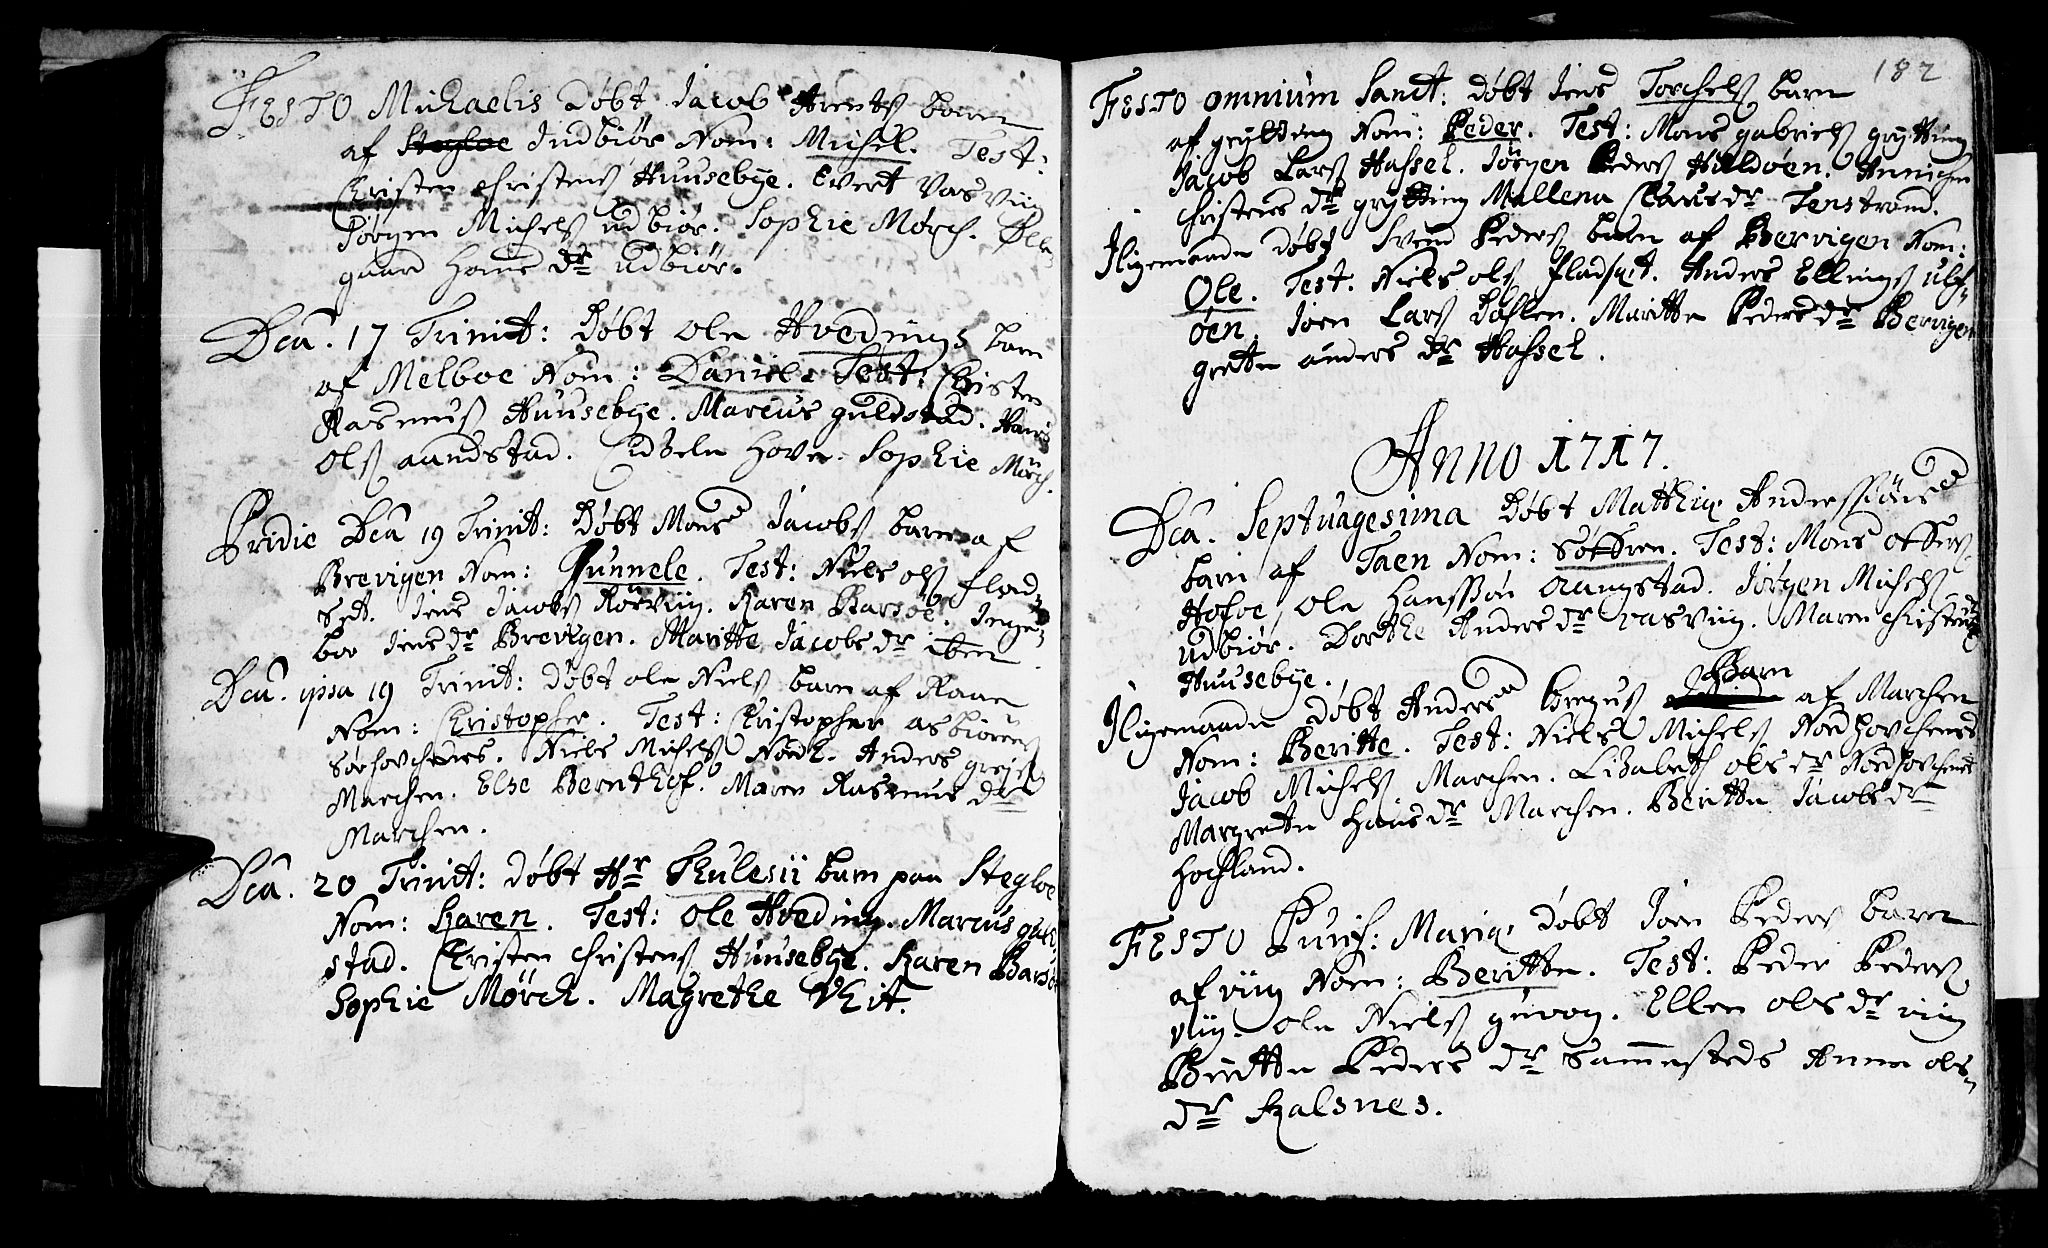 FESTO Michaelis Døbt Jacob Arents barn
af Stegloe Indbiør Nom: Michel. Test:
Christen Christens Huusebye. Evert Vasviig
Jørgen Michels udbiør. Sophie Mørch. Ølle
gaard Hans dr udbiør.
Dca. 17 Trinit: Døbt Ole Hvedings barn
af Melboe Nom: Daniel. Test: Christen
Rasmus Huusebye. Marcus guldstad. Hans
Ols aandstad. Cidzele Hove. Sophie Mørch.
Pridie Dca 19 Trinit: Døbt Mons Jacobs barn af
Brevigen Nom: Gunnele. Test: Niels ols flad-
set. Jens Jacobs Rörviig. Karen Barsøe. Inge-
bor Jens dr Brevigen. Maritte Jacobs dr ibm
Dca. ipsa 19 Trinit: Døbt ole Niels barn af Raae
Nom: Christopher. Test: Christopher asbiörns
Sørhovchenes. Niels Michels Nordh. Anders greje
Marchen. Else Bernthof. Maren Rasmus dr
Marchen.
Dca. 20 Trinit: Døbt Hr Thulesii barn paa Stegloe
Nom: Karen. Test: Ole Hveding. Marcus gul-
stad. Christen Christens Huusebye. Karen Barsøe
Sophie Mørch. Magrethe Vhit.
182
FESTO omnium Sanct: døbt Jens Torchels barn
af grytting Nom: Peder. Test: Mons gabriels grytting
Jacob Lars Hassel. Jørgen Peders Hilldøen. Annichen
Christens dr grytting Mallena Claus dr Tenstrand.
Iligemaade Døbt Svend Peders barn af Bervigen Nom:
Ole. Test. Niels ols fladset. Anders Ellings ulf-
öen. Joen Lars Dosken. Maritte Peders dr Bervigen
grette anders dr Hassel.
Anno 1717.
Dca. Septuagesima Døbt Matthiæ Anderssøns
barn af Taen Nom: Søffren. Test: Mons offers
Hofoe, Ole Hanssøn aangstad. Jørgen Michels
udbiør. Dorthe Anders dr vasviig. Maren Christens dr
Huusebye.
Iligemaade døbt Anders Gregus Barn af Marchen
Nom: Beritte. Test: Niels Michels Nordhovchenes
Jacob Michels Marchen. Lisabeth ols dr Nordhovchenes
Margrete Hans dr Marchen. Beritte Jacobs dr
Hochland.
FESTO Purif: Mariæ Døbt Joen Peders barn
af viig Nom: Beritte. Test: Peder Peders
viig. Ole Niels guvog. Ellen ols dr viig
Beritte Peders dr Sammesteds Anna ols-
dr Kalsnes.